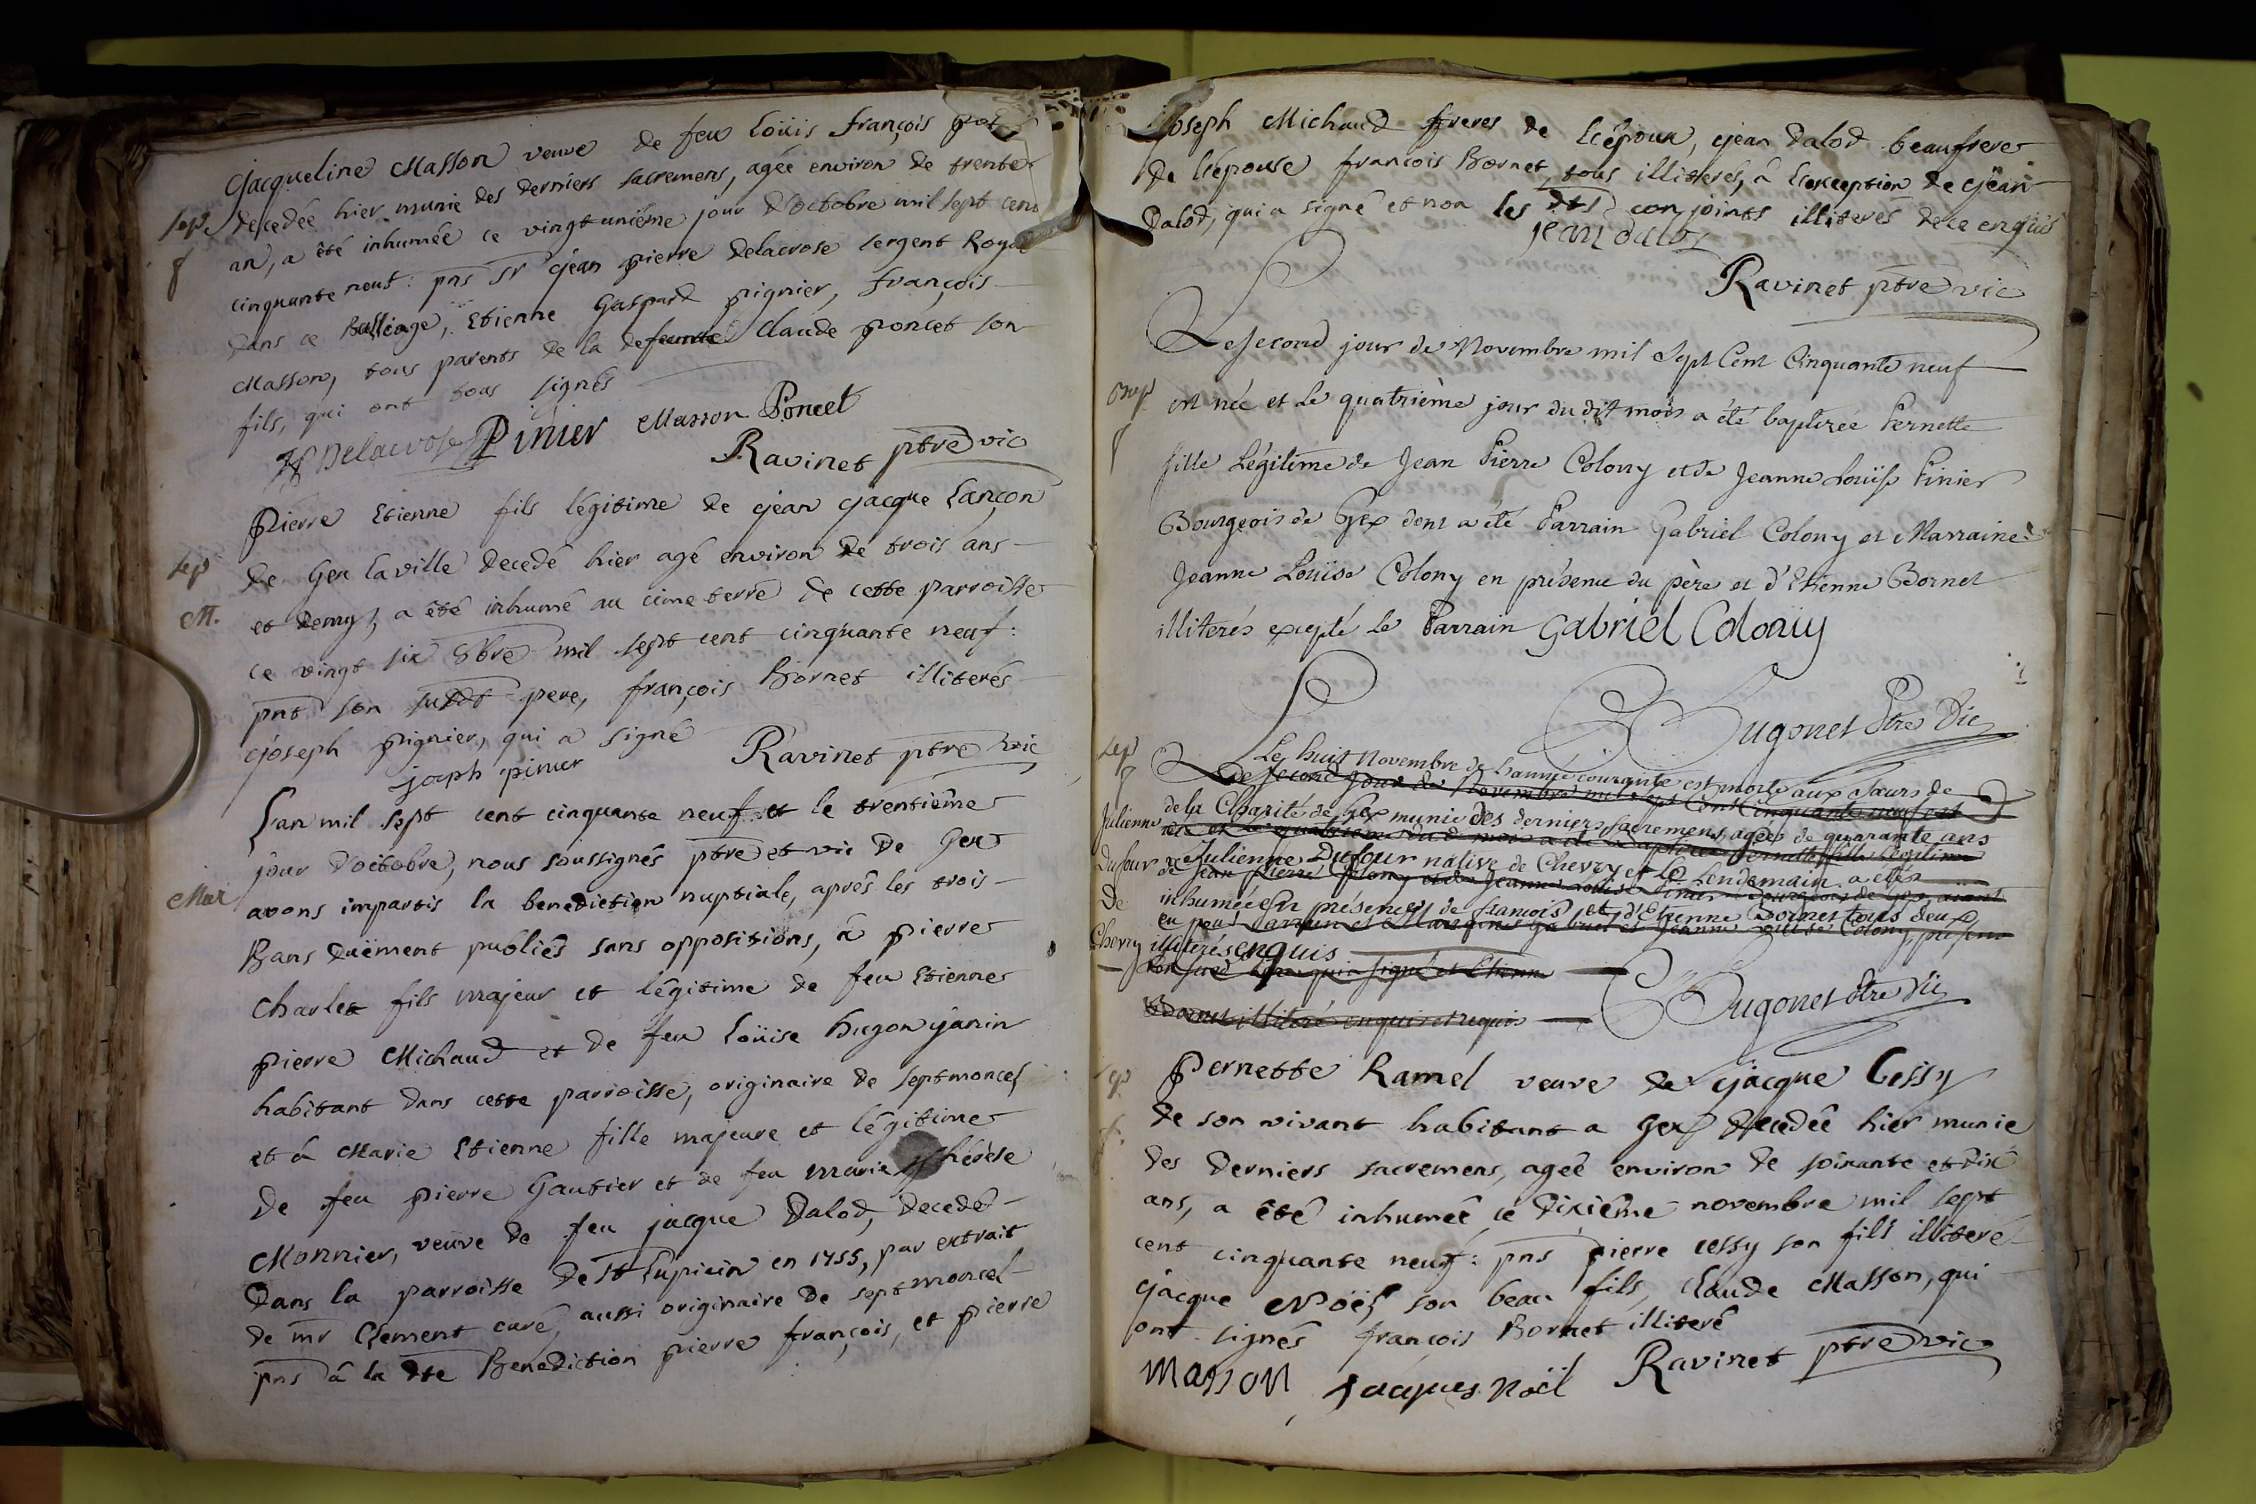 Jacqueline Masson veuve de feu Loüis françois
sep. decedée hier munie des derniers sacremens, agée environ de trente
f an, a êté inhumée ce vingtuniéme jour d'octobre mil sept cens
cinquante neuf: pns sr Jean pierre Delacrose sergent Royal
dans ce Balliage, Etienne Gaspard pignier, françois
Masson, tous parents de la defeunte Claude poncet son
fils, qui ont tous signés
Delacrose Pinier Masson Poncet
Ravinet ptre vic
Pierre Etienne fils légitime de Jean Jacque Lançon
sep de Gex la ville decedé hier agé environ de trois ans
M. et demy, a êté inhumé au cimeterre de cette parroisse
ce vingt six 8bre mil sept cent cinquante neuf:
pnt son susdt pere, françois Bornet illiterés
Joseph pignier, qui a signé
joseph pinier Ravinet ptre vic
L'an mil sept cent cinquante neuf et le trentiême
jour d'octobre, nous soussignés ptre et vic de Gex
Mar avons impartis la benediction nuptiale, aprês les trois
Bans duëment publiês sans oppositions, â pierre
Charlet fils majeur et légitime de feu Etienne
pierre Michaud et de feu Loüise hugon janin
habitant dans cette parroisse, originaire de septmoncel
et â Marie Etienne fille majeure et légitime
de feu pierre Gautier et de feu marie thérèse
Monnier, veuve de feu jacque Dalod, decedé
dans la parroisse de St Lupicin en 1755, par extrait
de mr Clement curé, aussi originaire de septmoncel
pns â la dte Bénédiction pierre françois, et pierre
Joseph Michaud freres de L'époux, Jean Dalod beaufrere
de L'épouse françois Bornet, tous illiterés, â L'exception de Jean
Dalod, qui a signé et non les dts conjoints illiterés de ce enquis
jean dalod
Ravinet ptre vic
Le second jour de Novembre mil Sept Cent Cinquante neuf
Bap. est née et Le quatrième jour du dit mois a été baptizée Pernette
f fille Légitime de Jean Pierre Colony et de Jeanne Louïse Pinier
Bourgeois de Gex dont a été Parrain Gabriel Colony et Marraine
Jeanne Louïse Colony en présence du père et d'Etienne Bornet
illiterés excepté Le Parrain Gabriel Colony
Hugonet Ptre Vic
sep Le huit Novembre de L'année courante est morte aux Sœurs de
f Le second jour de Novembre mil sept Cent Cinquante neuf est
Julienne de la Charité de Gex munie des derniers sacremens, agée de quarante ans
née et le quatrieme du d. mois a été baptizée Pernette fille Legitime
Dufour Julienne Dufour native de Chevry et Le Lendemain a étée
de Jean Pierre Colony et de Jeanne Louïse Pinier Bourgeois de Gex, aiant
De inhumée en présence de françois et d'Etienne Bornet tous deux
eu pour Parrain et Marraine Gabriel et Jeanne Louïse Colony, présens
Chevry illiterés enquis
qui a signé et Etienne
Bornet illiteré enquis et requis
Hugonet Ptre Vic
sep Pernette Ramel veuve de Jacque Cessy
f. de son vivant habitant a Gex decedêe hier munie
des derniers sacremens, agêe environ de soixante et dix
ans, a êtê inhumeê ce dixiême novembre mil sept
cent cinquante neuf: pns pierre cessy son fils illiteré
Jacque Noël son beau fils, Claude Masson, qui
ont signês françois Bornet illiterê
Masson Jacques Noël Ravinet ptre vic